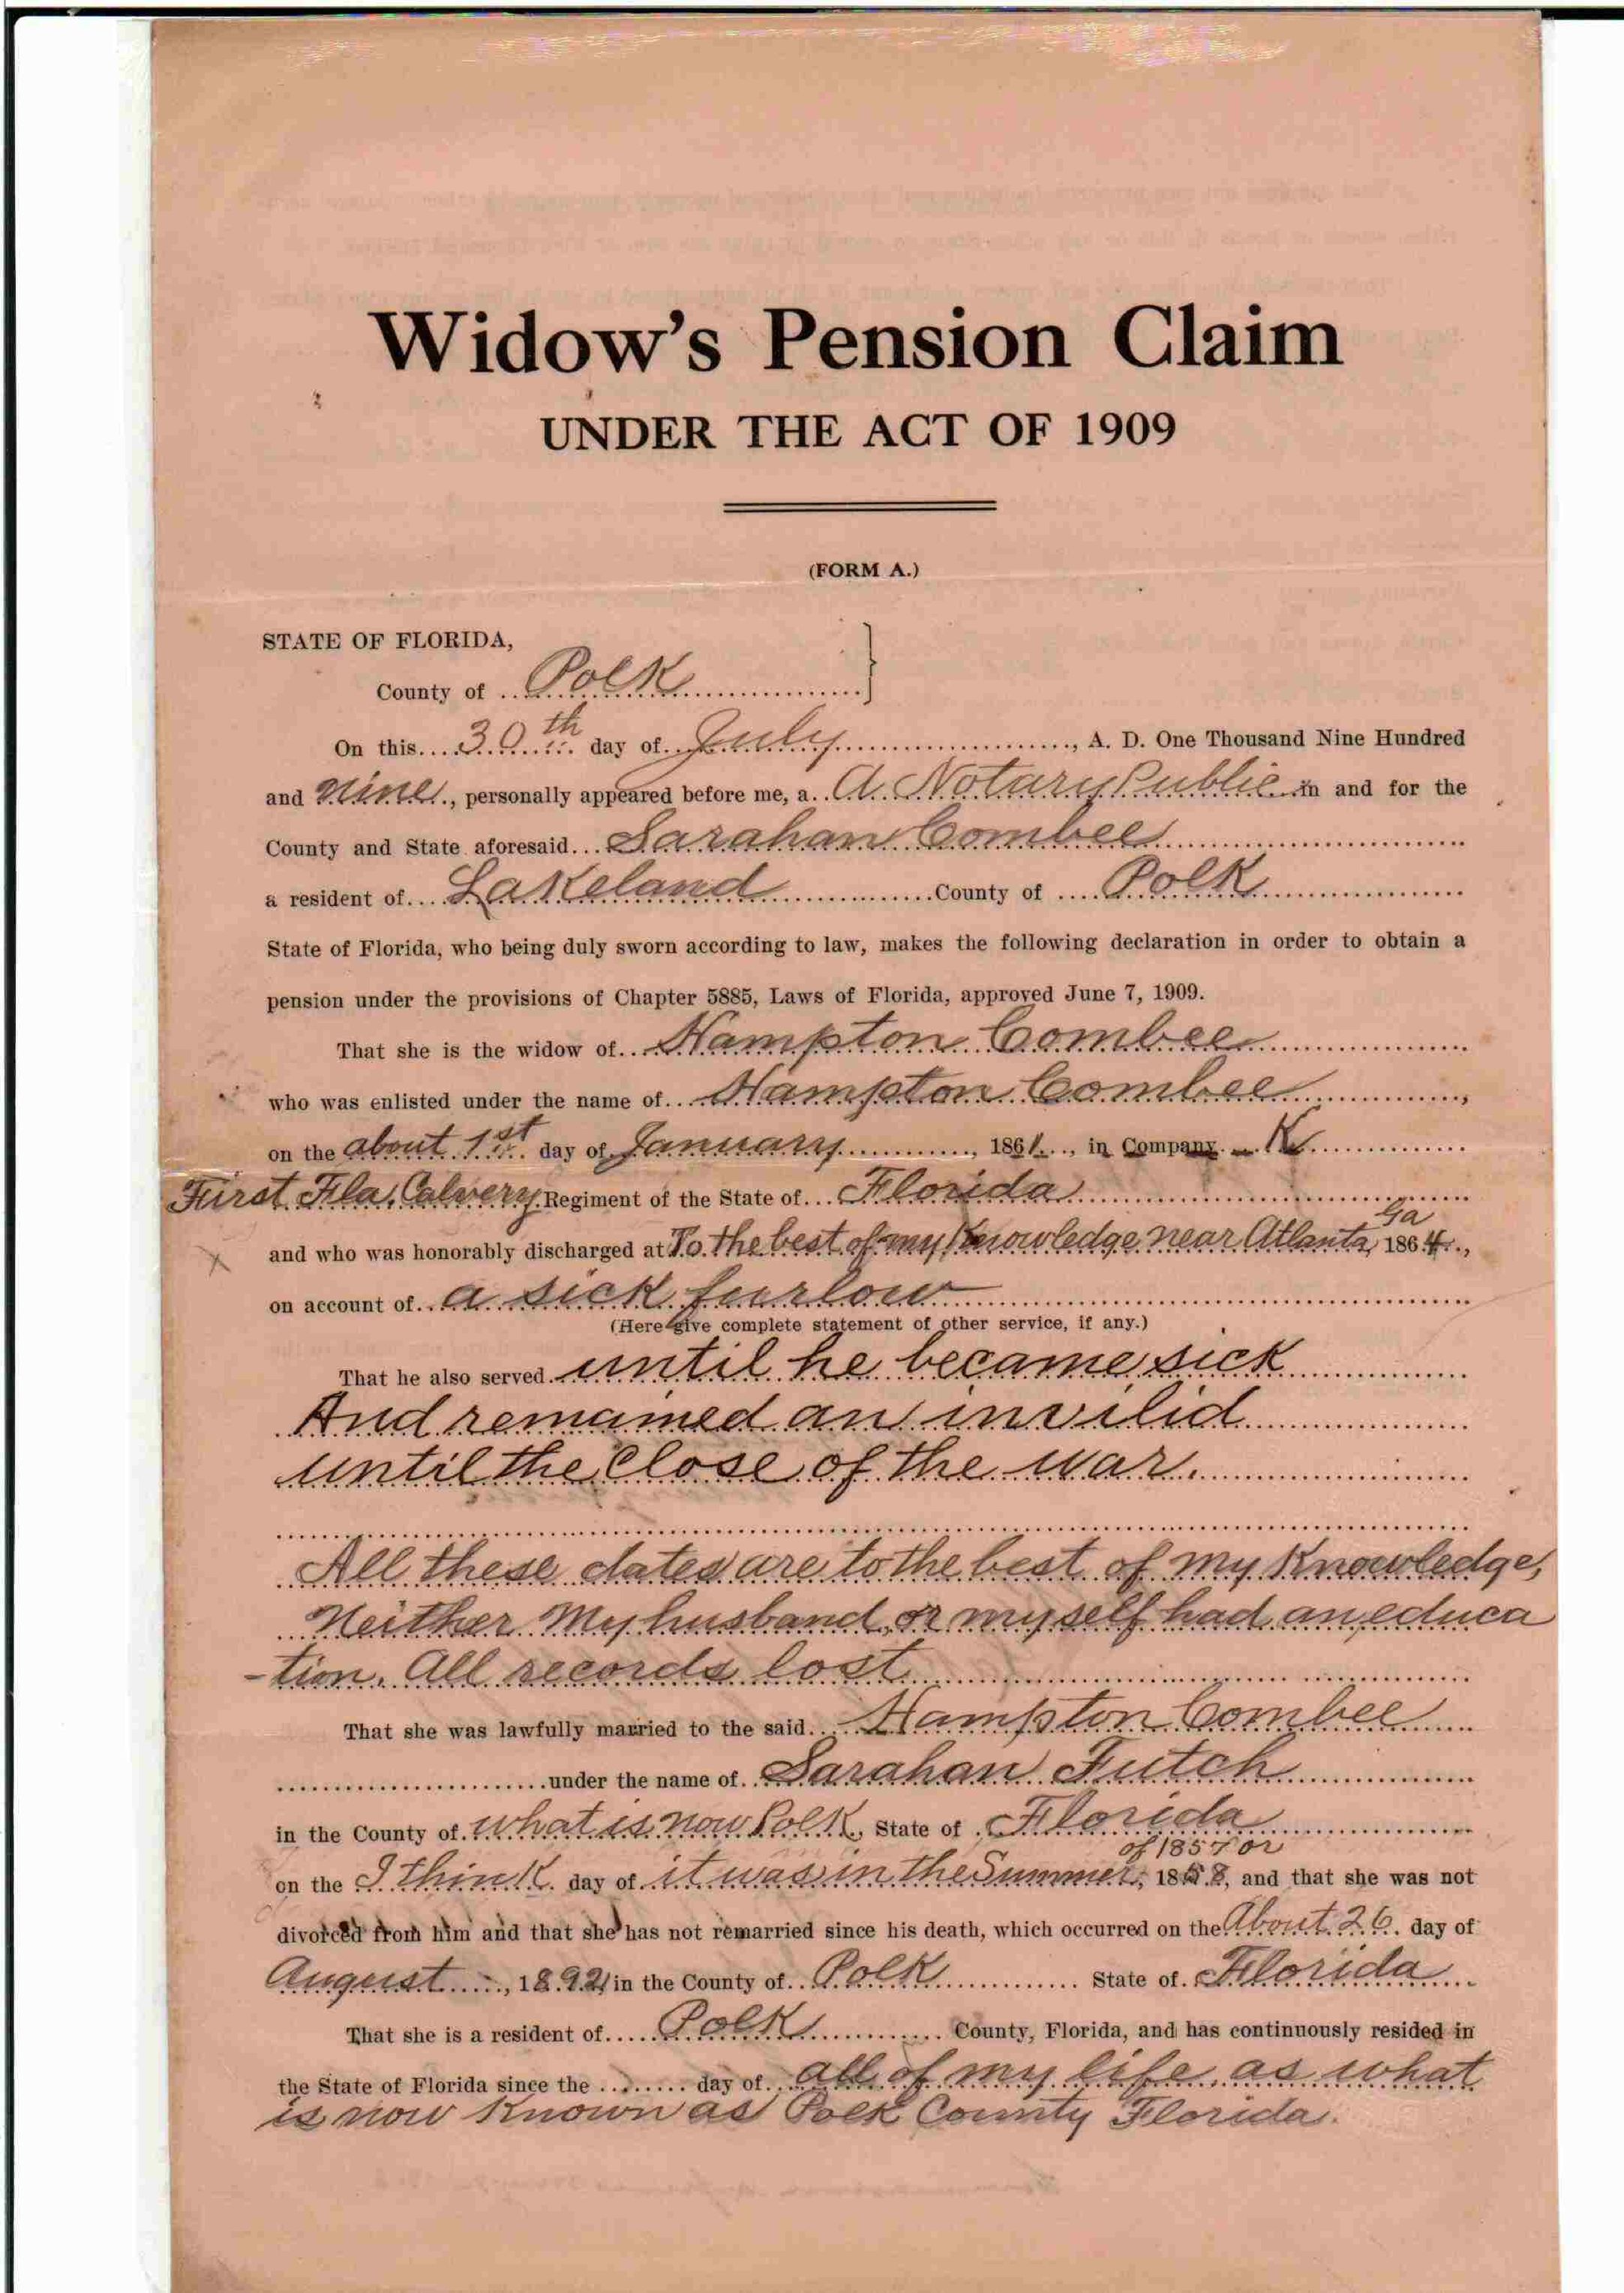 Widow's Pension Claim
UNDER THE ACT OF 1909
(FORM A.)
STATE OF FLORIDA,
County of Polk
On this 30th day of July, A. D. One Thousand Nine Hundred
and nine, personally appeared before me, a A Notary Public in and for the
County and State aforesaid Sarahan Combee
a resident of Lakeland County of Polk
State of Florida, who being duly sworn according to law, makes the following declaration in order to obtain a
pension under the provisions of Chapter 5885, Laws of Florida, approved June 7, 1909.
That she is the widow of Hampton Combee
who was enlisted under the name of Hampton Combee,
on the about 1st day of January, 1861, in Company K
First Fla. Calvery Regiment of the State of Florida
and who was honorably discharged at To the best of my Knowledge near Atlanta Ga, 1864,
on account of a sick furlow
(Here give complete statement of other service, if any.)
That he also served until he became sick
And remained an invilid
until the close of the war.
All these dates are to the best of my Knowledge,
Neither My husband or myself had an educa
-tion. All records lost
That she was lawfully married to the said Hampton Combee
under the name of Sarahan Futch
in the County of what is now Polk, State of Florida
of 1857 or
on the I think day of it was in the Summer, 1858, and that she was not
divorced from him and that she has not remarried since his death, which occurred on the About 26 day of
August, 1892 in the County of Polk State of Florida
That she is a resident of Polk County, Florida, and has continuously resided in
the State of Florida since the day of all of my life as what
is now Known as Polk County Florida.